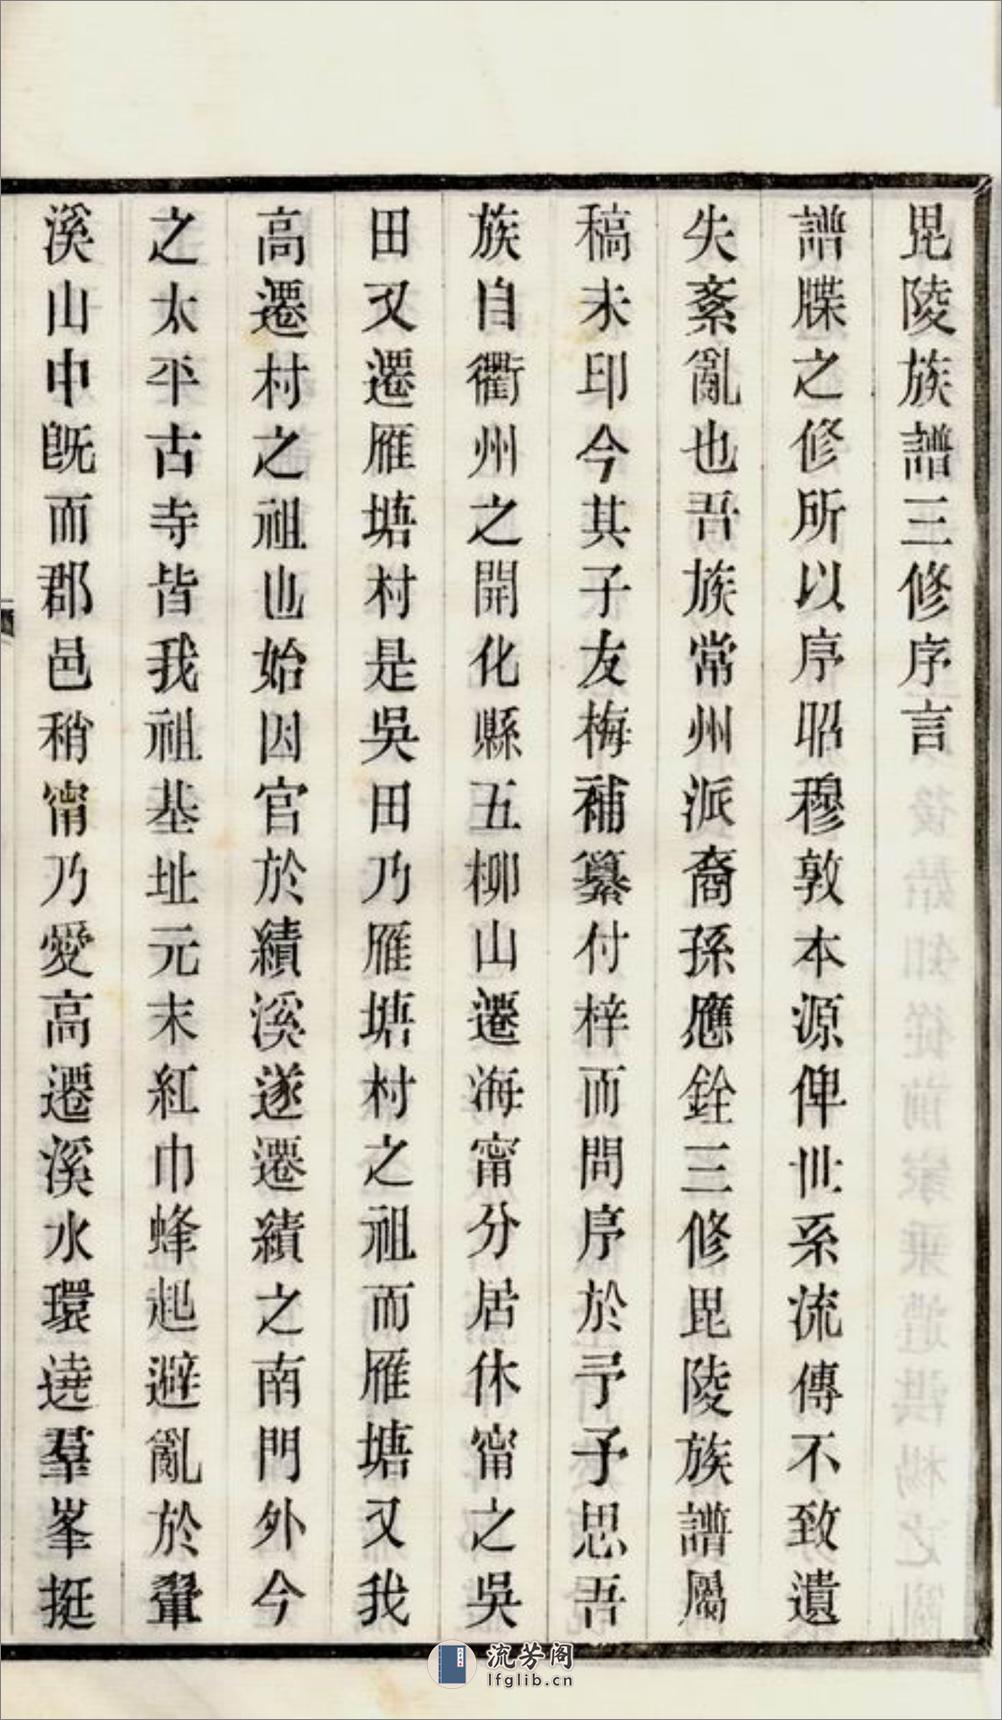 毘陵族譜三修序言
譜牒之修所以序昭穆敦本源俾世系流傳不致遺
失紊亂也吾族常州派裔孫應銓三修毘陵族譜屬
稿未印今其子友梅補纂付梓而問序於予予思吾
族自衢州之開化縣五柳山遷海甯分居休甯之吳
田又遷雁塘村是吳田乃雁塘村之祖而雁塘又我
高遷村之祖也始因官於績溪遂遷績之南門外今
之太平古寺皆我祖基址元末紅巾蜂起避亂於翬
溪山中旣而郡邑稍甯乃愛高遷溪水環遶羣峯挺
流芳阁
lfglib.cn